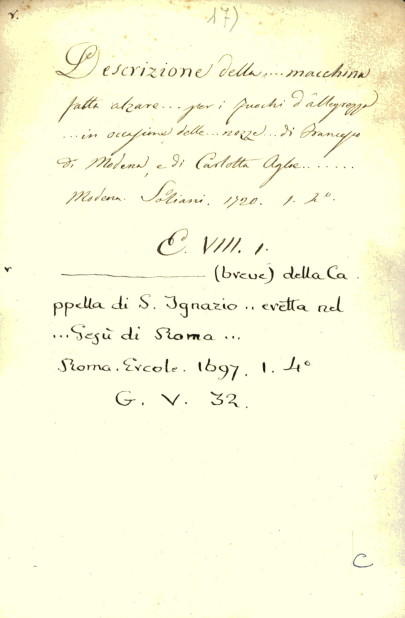 17)
Descrizione della .... macchina
fatta alzare ... per i fuochi d'allegrezza
... in occasione delle ... nozze .. di Francesco
di Modena, e di Carlotta Aglae ......
Modena. Soliani. 1720. 1. 4°.
E. VIII. 1.
———— (breve) della Ca
ppella di S. Ignazio .. eretta nel
... Gesù di Roma ...
Roma. Ercole. 1697. 1. 4°
G. V. 32.
C